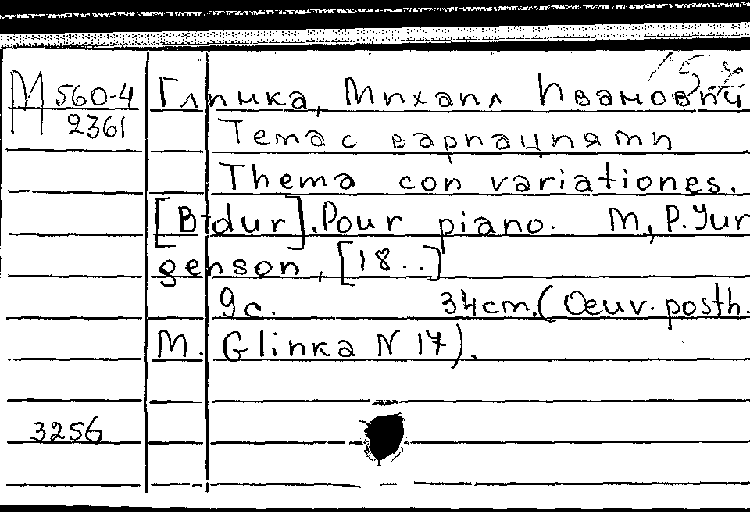 М 560-4
2361
Глинка, Михаил Иванович
Тема с вариациями
Thema con variationes.
[B-dur]. Pour piano. М, P. Jur
genson, [18..]
9 с. 34 cm. (Oeuv. posth.
M. Glinka N 17).
3256